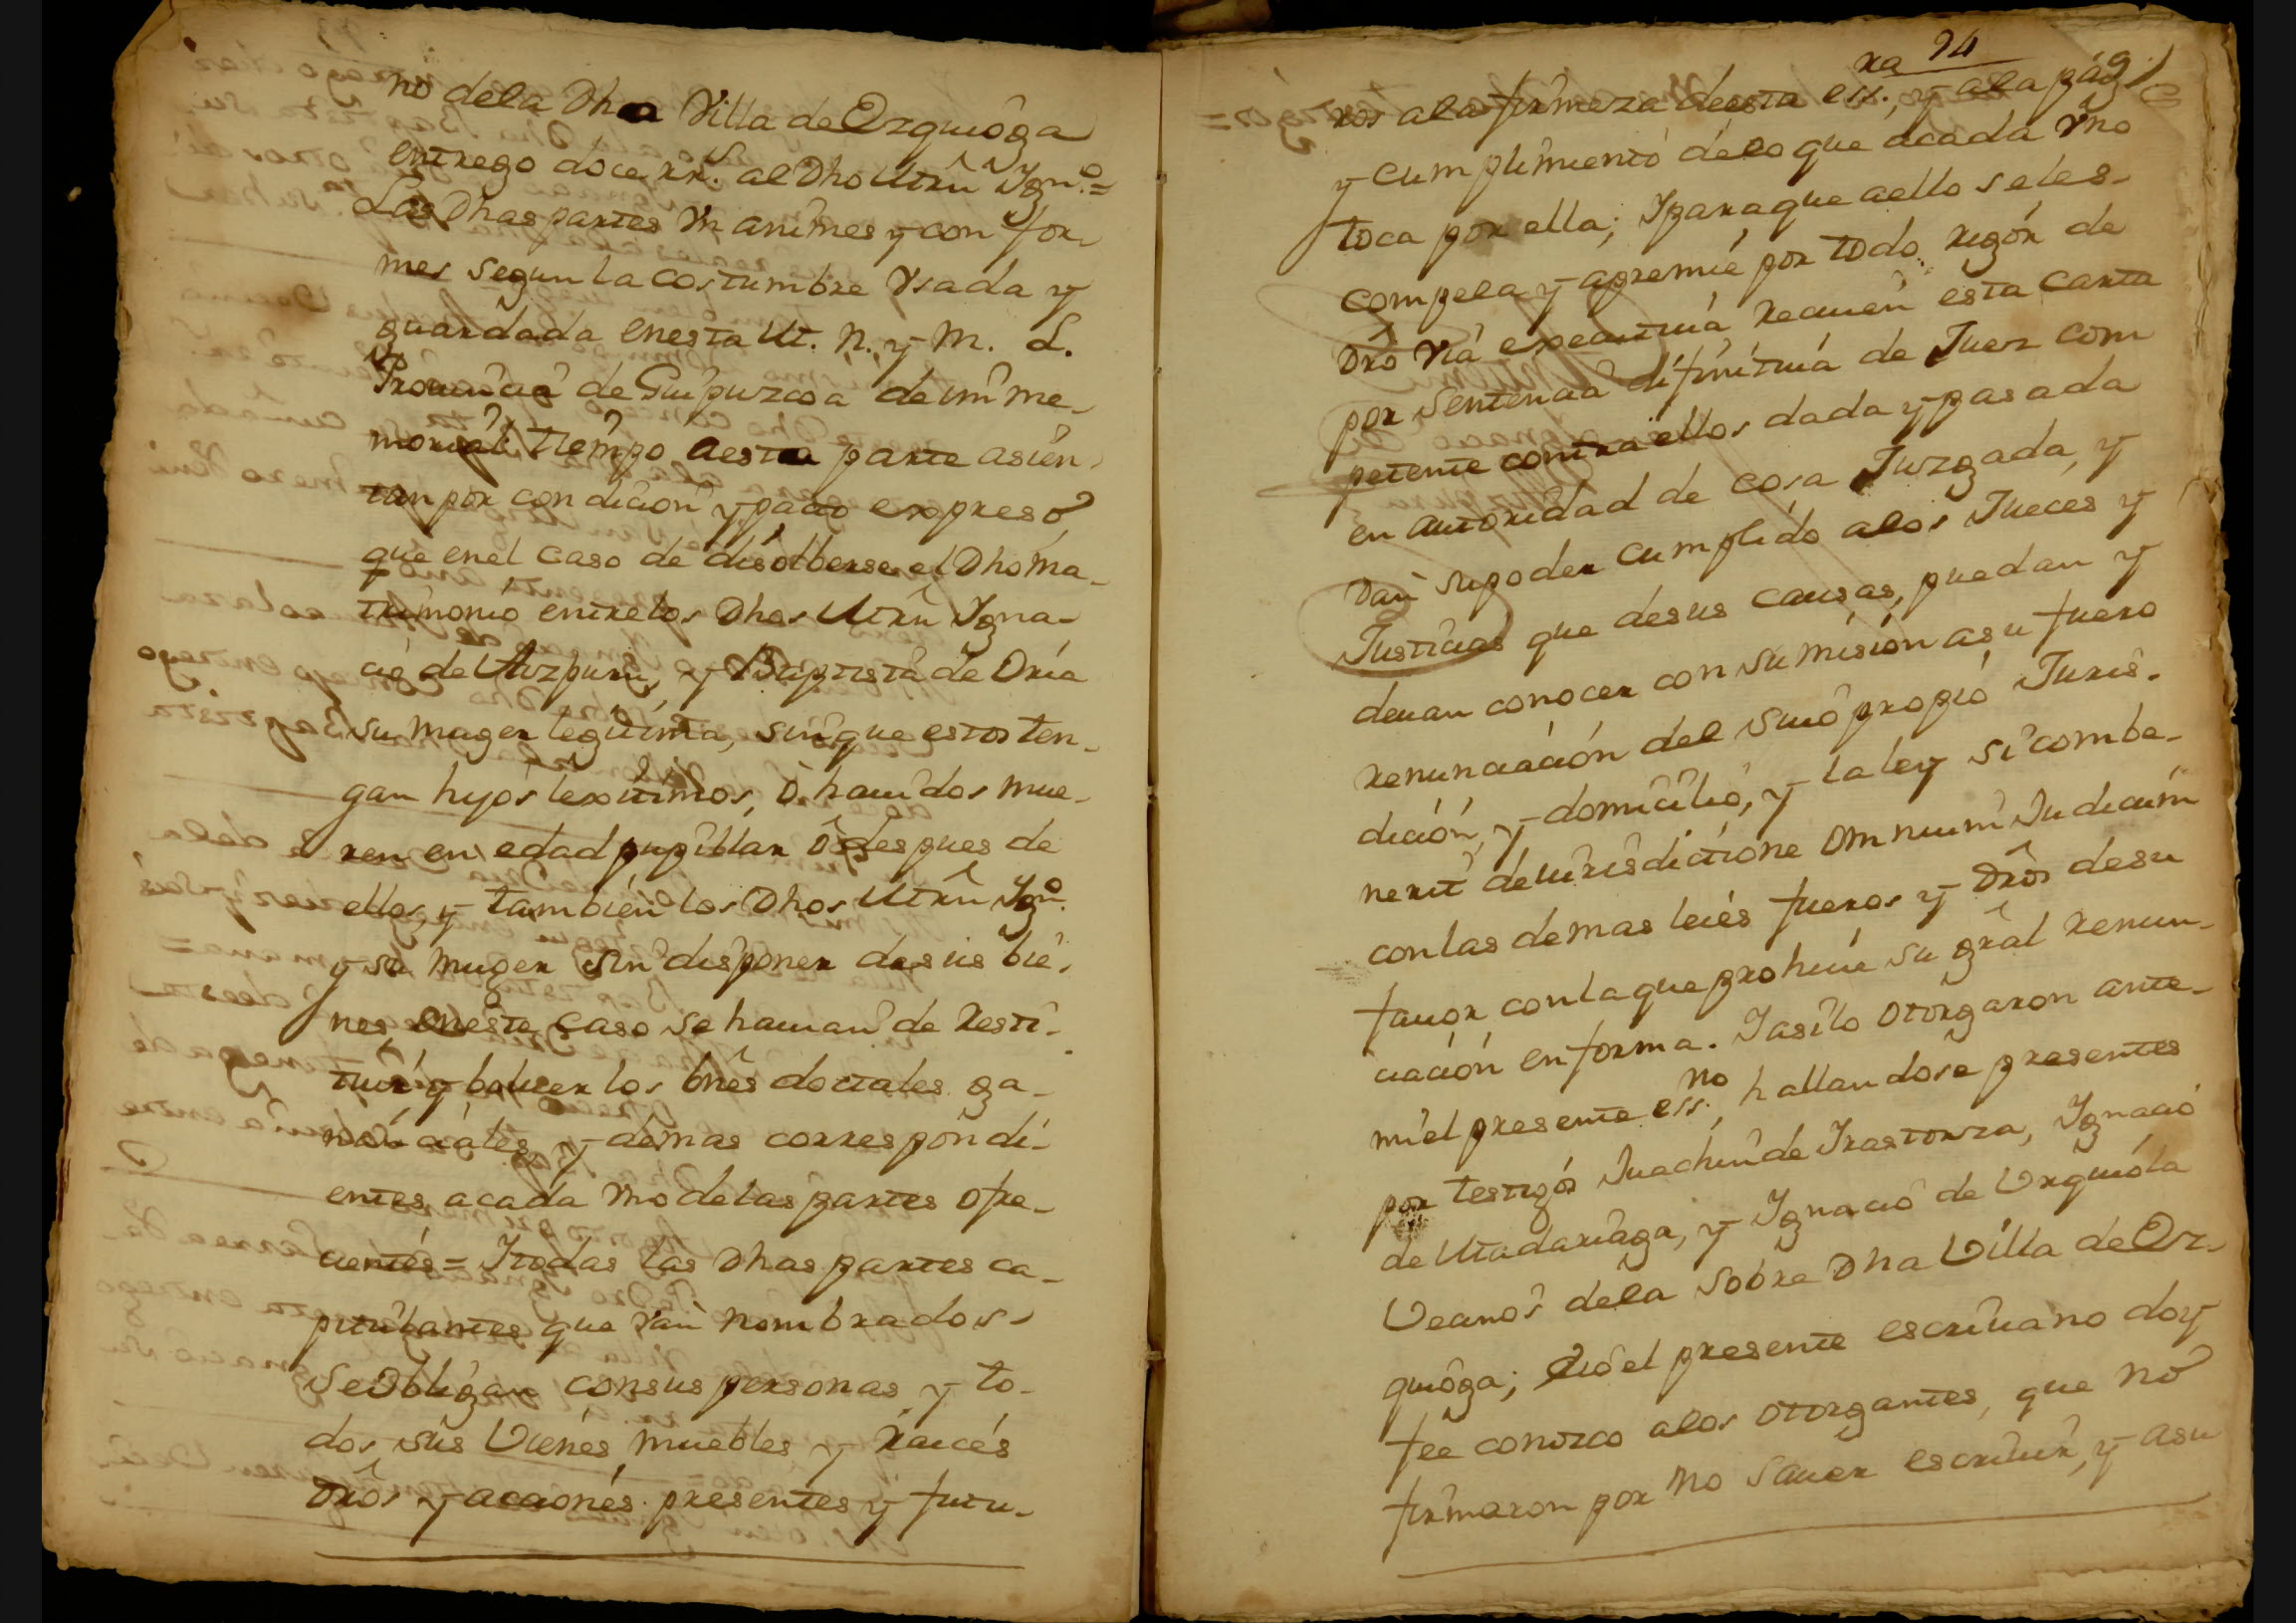 no dela Dha Villa de Ezquióga
entrego doce rrs. al Dho Mrñ Ign.º =
Las Dhas partes Vnanimes y confor-
mes segun la costumbre Vsada y
guardada enesta M. N. y M. L.
Prouincia de Guipuzcoa de imme-
morial tiempo aesta parte asien-
tan por condicion y pacto expreso
que enel caso de disolberse el Dho Ma-
trimonio entrelos Dhos Mrñ Igna-
cio de Auzpuru, y Baptista de Oria
su muger legitima, sin que estos ten-
gan hijos lexitimos, ò hauidos mue-
ren en edad pupillar ò despues de
ellos, y tambien los Dhos Mrñ Ign.º
y su muger sin disponer desus bie-
nes, eneste caso se hauian de resti-
tuir y boluer los bñes dotales ga-
nanciales, y demas correspondi-
entes acada Vno delas partes ofre-
cientes = I todas las Dhas partes ca-
pitulantes que Van nombrados
se obligan consus personas y to-
dos sus Vienes muebles y raices
Dros y acciones presentes y futu-
ra 94
ros ala firmeza deesta ess.ª, y ala pag
y cumplimiento delo que acada Vno
toca por ella; I paraque aello seles
compela y apremie por todo rigór de
Dro Via executiua reciuen esta Carta
por Sentencia difinitiua de Juez com
petente contra ellos dada y pasada
en autoridad de cosa Juzgada, y
Dan supoder cumplido alos Jueces y
Justicias que desus causas, puedan y
deuan conocer con sumision asu fuero
renunciación del suio propio Juris-
dición, y domicilio, y laley si combe-
nerit deiurisdictione omnium Judicum
conlas demas leies fueros y Dros desu
fauor conlaque prohiue su gral renun-
ciación enforma. I asilo otorgaron ante-
mi el presente ess.no, hallandose presentes
por testigos Juachin de Irastorza, Ignacio
de Madariaga, y Ignacio de Urquiola
Vecinos dela sobre Dha Villa de Ez-
quióga; Eio el presente escriuano doy
fee conozco alos otorgantes, que no
firmaron por no sauer escriuir, y asu